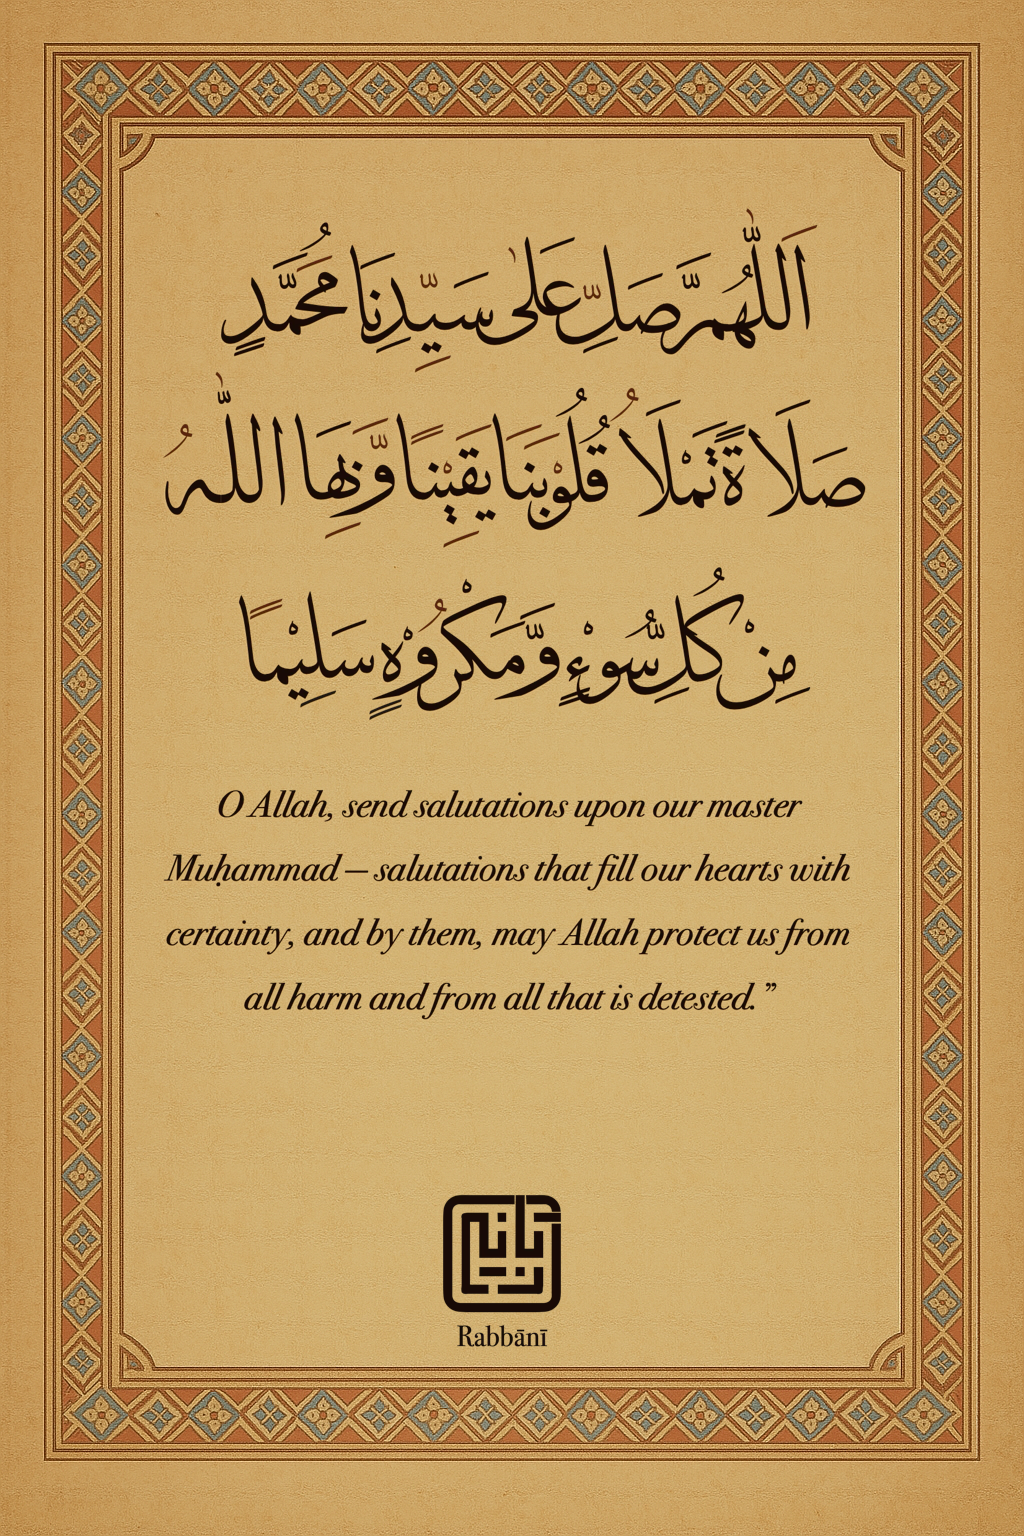 اَللّٰهُمَّ صَلِّ عَلٰى سَيِّدِنَا مُحَمَّدٍ
صَلَاةً تَمْلَأُ قُلُوْبَنَا يَقِيْنًا وَّبِهَا اللّٰهُ
مِنْ كُلِّ سُّوْءٍ وَّمَكْرُوْهٍ سَلِيْمًا
O Allah, send salutations upon our master
Muḥammad – salutations that fill our hearts with
certainty, and by them, may Allah protect us from
all harm and from all that is detested.”
Rabbānī